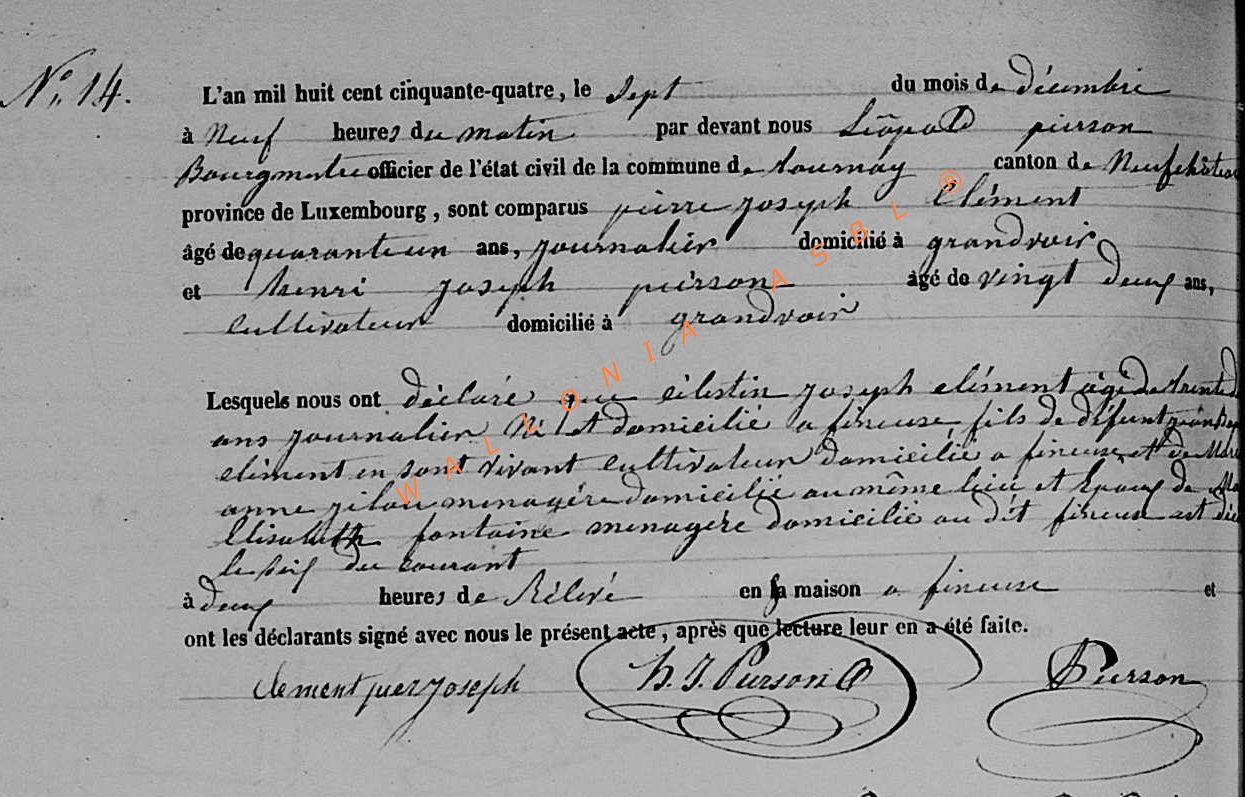 N° 14.
L'an mil huit cent cinquante-quatre, le Sept du mois de décembre
à Neuf heures du matin par devant nous Léopold pierson
Bourgmestre officier de l'état civil de la commune de tournay canton de Neufchâteau
province de Luxembourg, sont comparus pierre joseph Clément
âgé de quarante un ans, journalier domicilié à grandvoir
et henri joseph pierson âgé de vingt deux ans,
cultivateur domicilié à grandvoir
Lesquels nous ont déclaré que célestin joseph clément âgé de trente
ans journalier Né et domicilié a fineuse fils de défunt jean
clément en sont vivant cultivateur domicilié a fineuse et de
anne domicilié au même lieu et Epoux de
Elisabeth fontaine menagére domicilié au dit fineuse est
le six du courant
à deux heures de Rélevé en sa maison a fineuse et
ont les déclarants signé avec nous le présent acte, après que lecture leur en a été faite.
clement joseph H. J. Pierson Pierson
WALLONIA ASBL ®